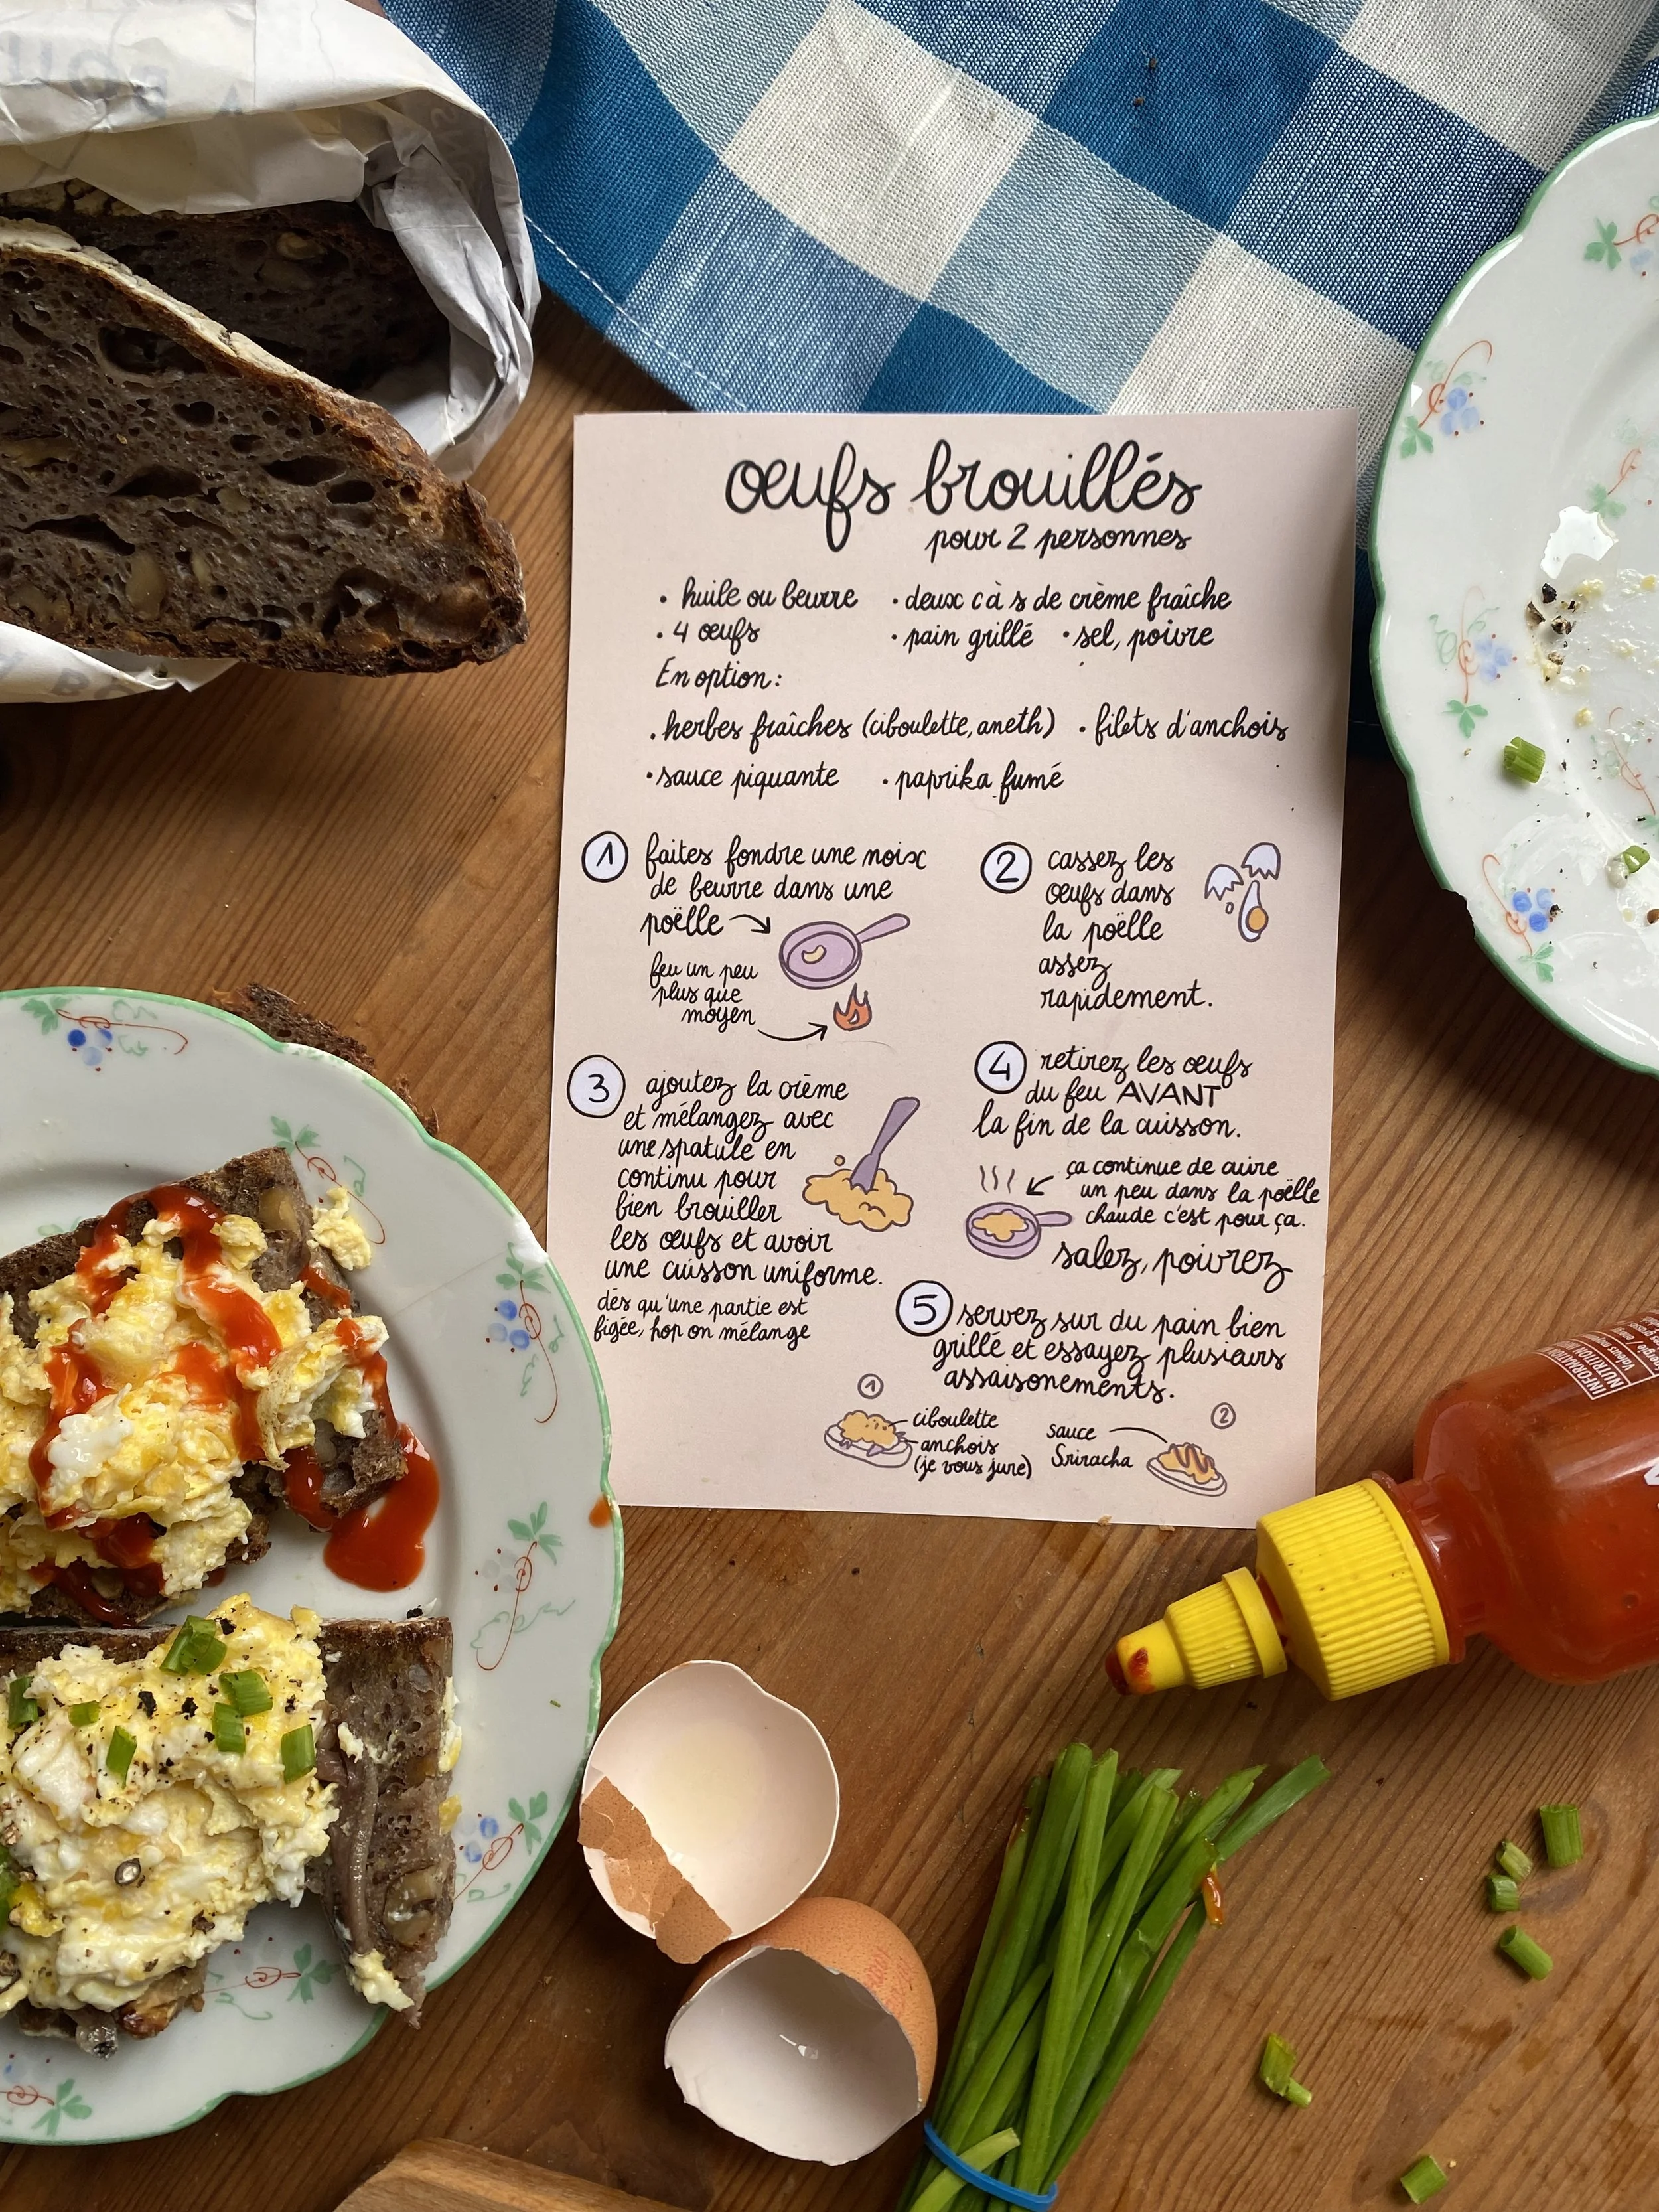 œufs brouillés
pour 2 personnes
• huile ou beurre • deux c à s de crème fraîche
• 4 œufs • pain grillé • sel, poivre
En option :
• herbes fraîches (ciboulette, aneth) • filets d'anchois
• sauce piquante • paprika fumé
1 faites fondre une noix
de beurre dans une
poëlle
feu un peu
plus que
moyen
2 cassez les
œufs dans
la poëlle
assez
rapidement.
3 ajoutez la crème
et mélangez avec
une spatule en
continu pour
bien brouiller
les œufs et avoir
une cuisson uniforme.
dès qu'une partie est
figée, hop on mélange
4 retirez les œufs
du feu AVANT
la fin de la cuisson.
ça continue de cuire
un peu dans la poëlle
chaude c'est pour ça.
salez, poivrez
5 servez sur du pain bien
grillé et essayez plusieurs
assaisonements.
1
ciboulette
anchois
(je vous jure)
2
sauce
Sriracha
INFORMATION
NUTRITION